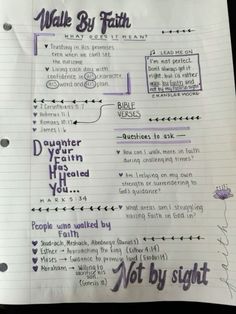 Walk By Faith
WHAT DOES IT MEAN?
Trusting in His promises
even when we cant see
the outcome
Living each day with
confidence in HIS character
HIS word and HIS plan.
LEAD ME ON
I'm not perfect
Don't always get it
right, but I'd rather
walk by faith and
not by my failing sight
CHANDLER MOORE
2 Corinthians 5:7
Hebrews 11:1
Romans 10:17
James 1:6
BIBLE
VERSES
Daughter
Your
Faith
Has
Healed
You...
MARK 5:34
Questions to ask
How can I walk more in faith
during challenging times?
Am I relying on my own
strength or surrendering to
God's guidance?
What areas am I struggling
having Faith in God in?
People who walked by
Faith
Shadrach, Meshach, Abednego (Daniel 3)
Esther → approaching the king (Esther 4:14)
Moses → Guidance to promise land
Abraham → Willing to
sacrifice his
son
(Genesis 22)
Not by sight
faith